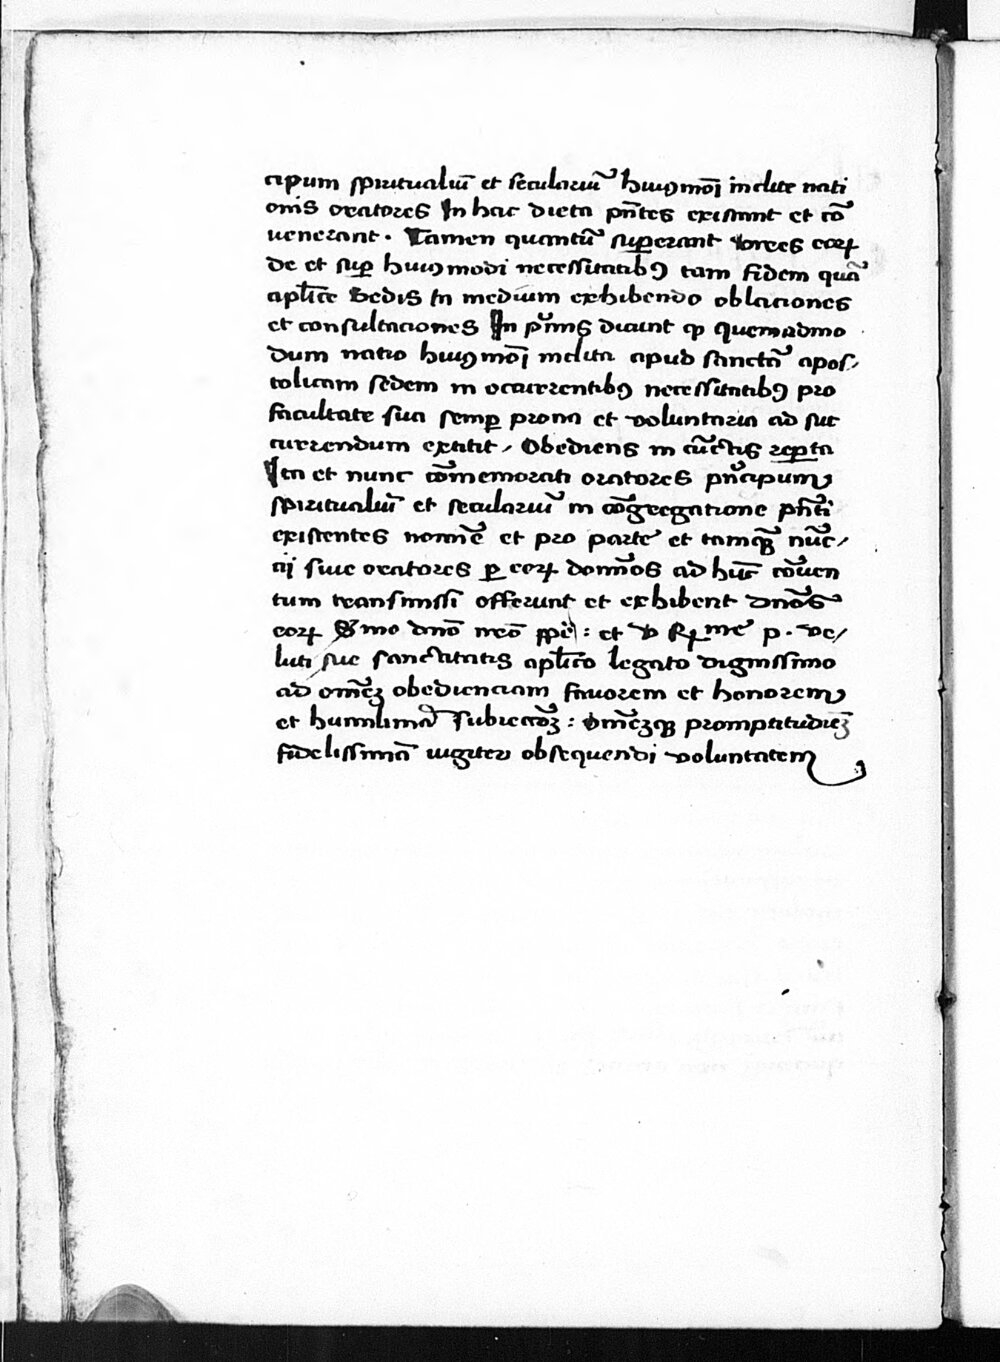 cipum spiritualiū et seculariū huiꝰmōi inclite nati
onis oratores In hac dieta p̄ntes existunt et cō
uenerant. Tamen quantū suꝑerant vires eoꝝ
de et suꝑ huiusmodi necessitatibꝰ tam fidem quā
apl̄ice Sedis in medium exhibendo oblaciones
et consultaciones In p̄mis dicunt ꝙ quemadmo
dum natio huiꝰmōi inclita apud sanctā apos-
tolicam sedem in occurrentibꝰ necessitatibꝰ pro
facultate sua semꝑ prona et voluntaria ad suc
currendum extitit / Obediens in cūctis reꝑta
Ita et nunc cōmemorati oratores pn̄cipum
spiritualiū et seculariū in cōgregatione pn̄ti
existentes nomīe et pro parte et tamqꝫ nūc/
cij siue oratores ꝑ eoꝝ dominōs ad hūc cōuen
tum transmissi offerunt et exhibent dnōs
eoꝝ S mo dnō nrō pp̄e : et v R me p. ve/
luti sue sanctitatis apl̄ico legato dignissimo
ad omēꝫ obedienciam fauorem et honorem
et humilimā subiectōꝫ : Omēꝫqꝫ promptitudīeꝫ
fidelissimā iugiter obsequendi voluntatem